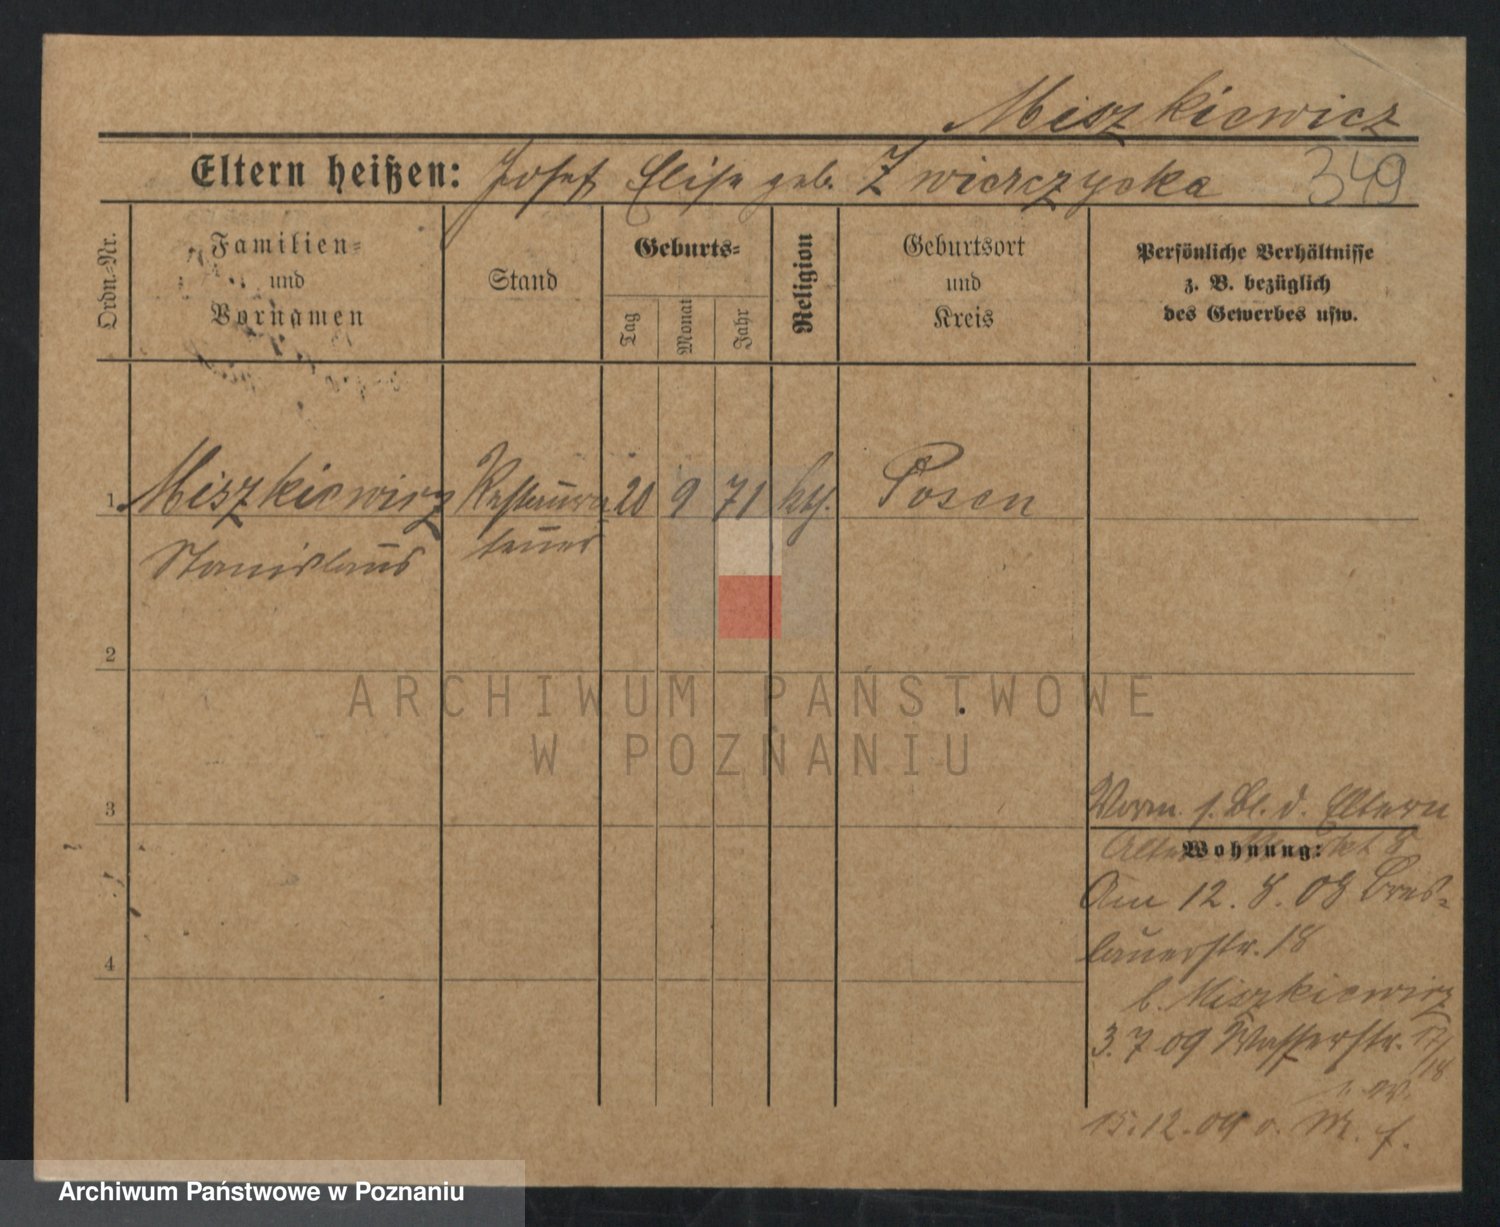 Miszkiewicz
Eltern heißen: Josef Elise geb. Zwierczycka 349
Ordn.-Nr.
Familien-
und
Vornamen
Stand
Geburts-
Tag
Monat
Jahr
Religion
Geburtsort
und
Kreis
Persönliche Verhältnisse
z. B. bezüglich
des Gewerbes usw.
1 Miszkiewicz Restaura 20 9 71 kth. Posen
Stanislaus teurs
2
ARCHIWUM PAŃSTWOWE
W POZNANIU
3
Vorm. s. Bl. d. Eltern
Wohnung:
Alter 8
Am 12. 8. 08 Bres-
lauerstr. 18
4
b. Miszkiewicz
3. 7 09 Wasserstr. 17/18
15. 12. 09 v. M. f.
Archiwum Państwowe w Poznaniu